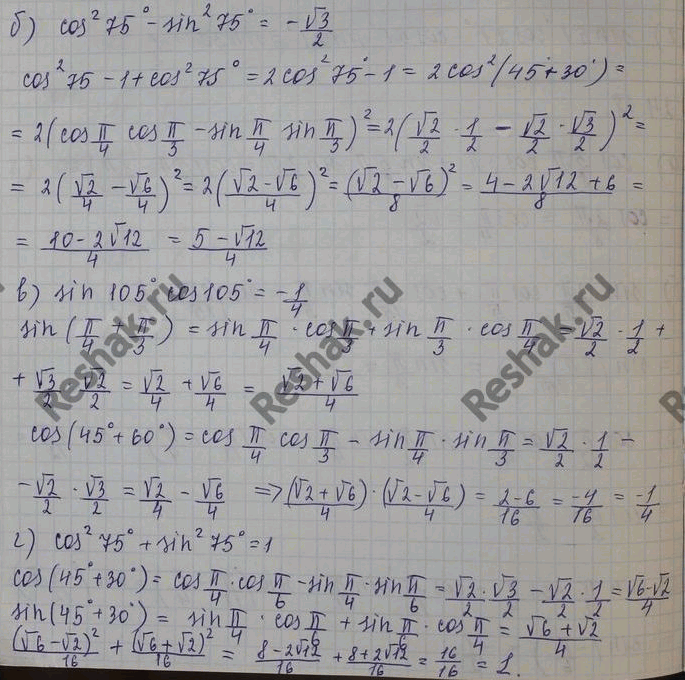 б) cos²75° - sin²75° = -√3/2
cos²75 - 1 + cos²75° = 2cos²75° - 1 = 2cos²(45°+30°) =
= 2(cos π/4 cos π/3 - sin π/4 sin π/3)² = 2(√2/2 · 1/2 - √2/2 · √3/2)² =
= 2(√2/4 - √6/4)² = 2((√2-√6)/4)² = (√2-√6)²/8 = (4-2√12+6)/8 =
= (10-2√12)/4 = (5-√12)/4
в) sin 105° cos 105° = -1/4
sin(π/4 + π/3) = sin π/4 · cos π/3 + sin π/3 · cos π/4 = √2/2 · 1/2 +
+ √3/2 · √2/2 = √2/4 + √6/4 = (√2+√6)/4
cos(45°+60°) = cos π/4 cos π/3 - sin π/4 · sin π/3 = √2/2 · 1/2 -
- √2/2 · √3/2 = √2/4 - √6/4 => (√2+√6)/4 · (√2-√6)/4 = (2-6)/16 = -4/16 = -1/4
г) cos²75° + sin²75° = 1
cos(45°+30°) = cos π/4 · cos π/6 - sin π/4 · sin π/6 = √2/2 · √3/2 - √2/2 · 1/2 = (√6-√2)/4
sin(45°+30°) = sin π/4 · cos π/6 + sin π/6 · cos π/4 = (√6+√2)/4
(√6-√2)²/16 + (√6+√2)²/16 = (8-2√12)/16 + (8+2√12)/16 = 16/16 = 1.
Reshak.ru
Reshak.ru
Reshak.ru